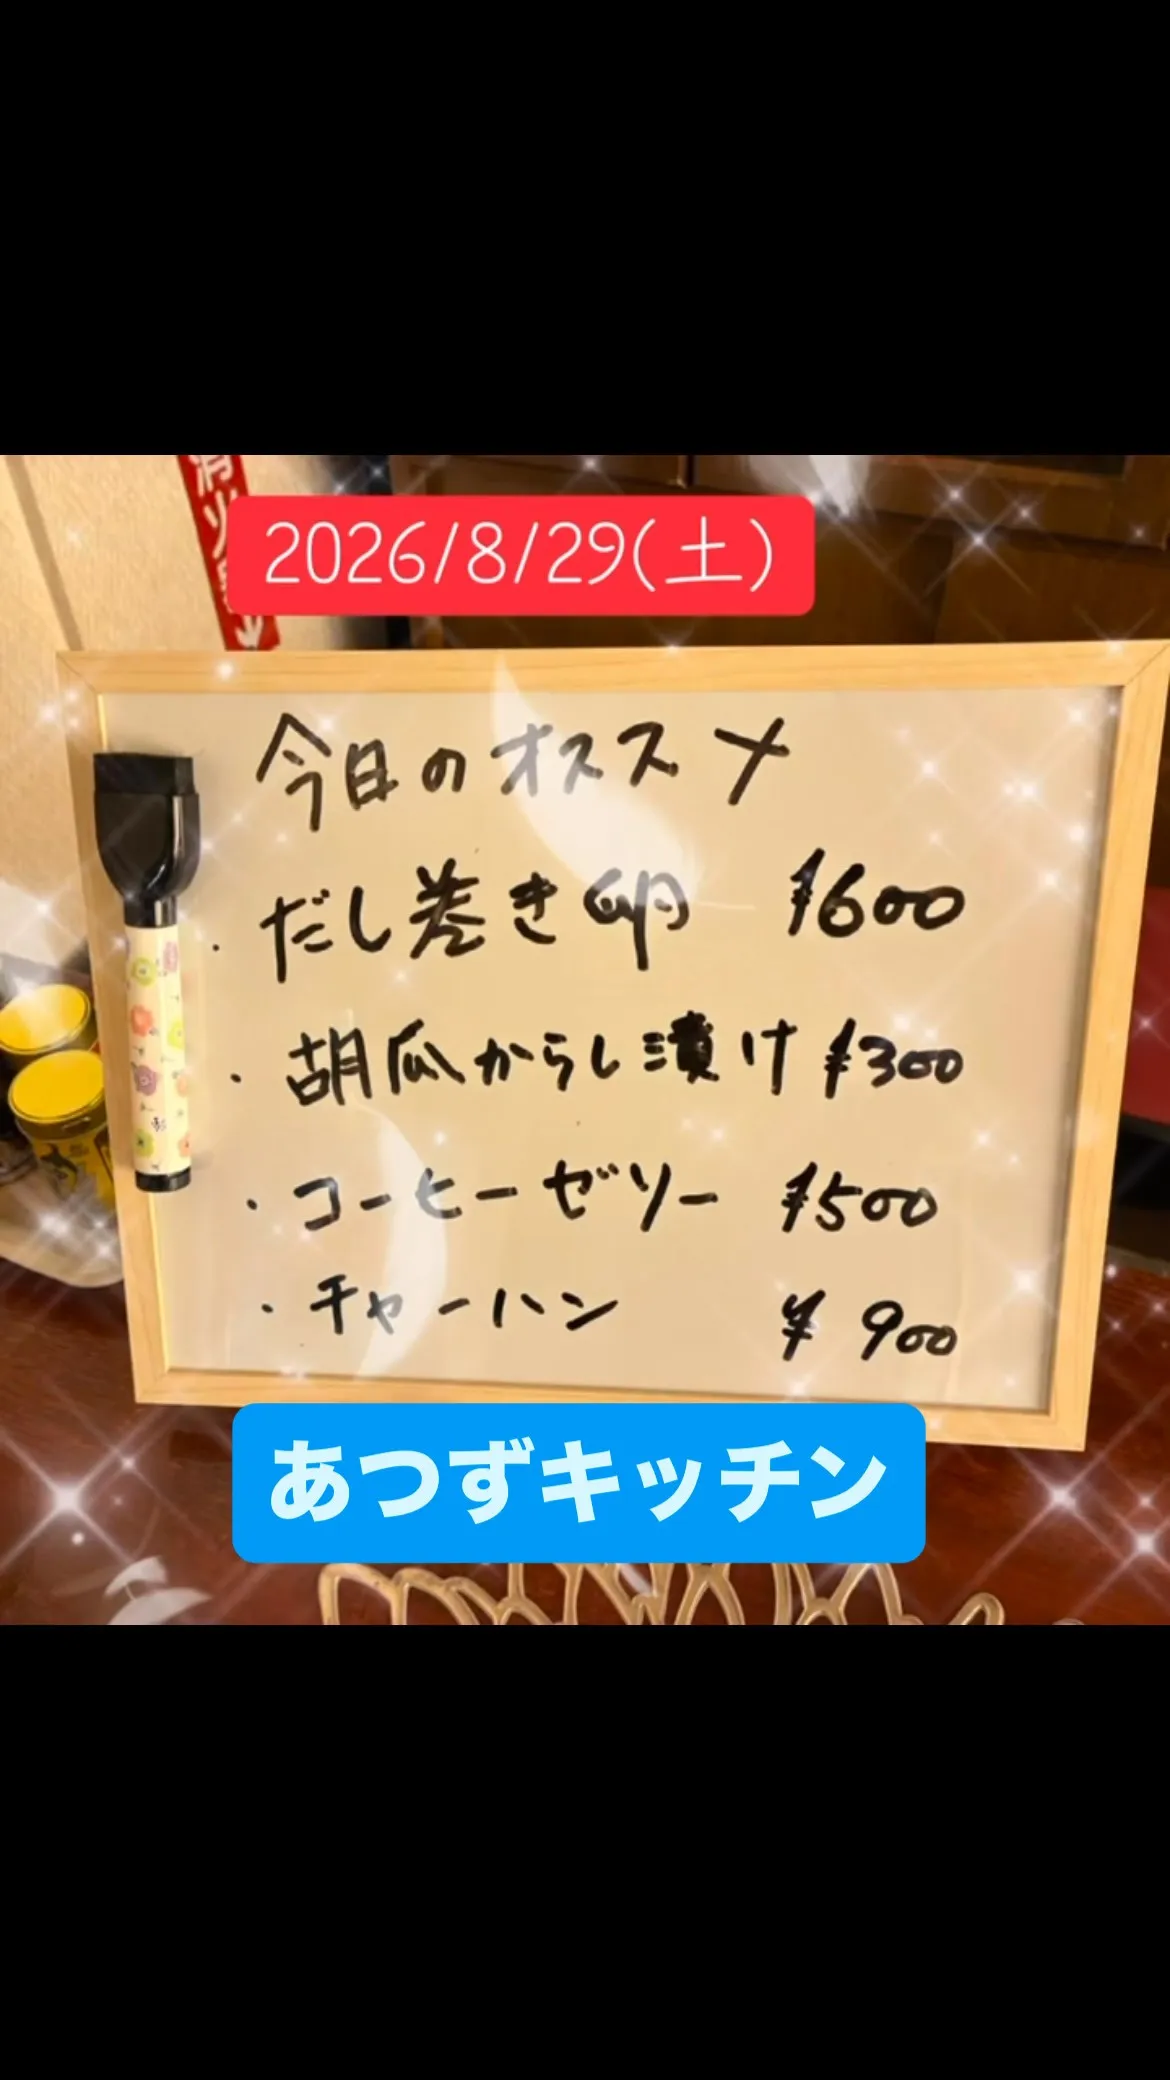 消火器
2026/8/29(土)
今日のオススメ
・だし巻き卵 ¥600
・胡瓜からし漬け ¥300
・コーヒーゼリー ¥500
・チャーハン ¥900
あつずキッチン